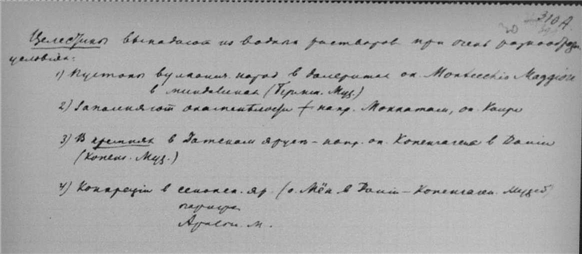 310А.
30
Целестины выпадают из водных растворов при очень разнообраз
условіях:
1) Пустоты вулканич. пород в долеритах ок. Montecchio Maggiore
в миндалинах (Геттинг. Муз.)
2) Заполняют окаменелости напр. Моккатам, ок. Каира
3) В кремнях в Датском ярусе напр. ок. Копенгагена в Даніи
(Копенг. Муз.)
4) Конкреціи в сенонск. яр. (о. Мён в Даніи – Копенгаген. Музей)